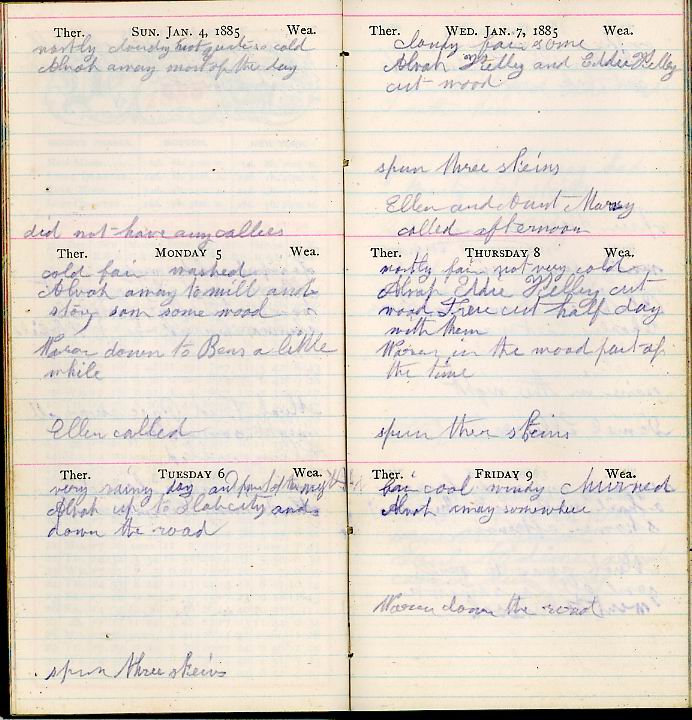 Ther. SUN. JAN. 4, 1885 Wea.
mostly cloudy not quite so cold
Alvah away most of the day
did not have any callies
Ther. MONDAY 5 Wea.
cold fair washed
Alvah away to mill and
stoy som some wood
Waren down to Bens a little
while
Ellen called
Ther. TUESDAY 6 Wea.
very rainy day and part of the
Alvah up to Slabcity and
down the road
spun three skeins
Ther. WED. JAN. 7, 1885 Wea.
clondy fair some
Alvah Kelley and Eddie Kelley
cut wood
spun three skeins
Ellen and Aunt Marey
called afternoon
Ther. THURSDAY 8 Wea.
mostly fair not very cold
Alvah Eddie Kelley cut
wood cut half day
with them
Waren in the wood part of
the time
spun ther skeins
Ther. FRIDAY 9 Wea.
fair cool windy churned
Alvah away somewhere
Waren down the